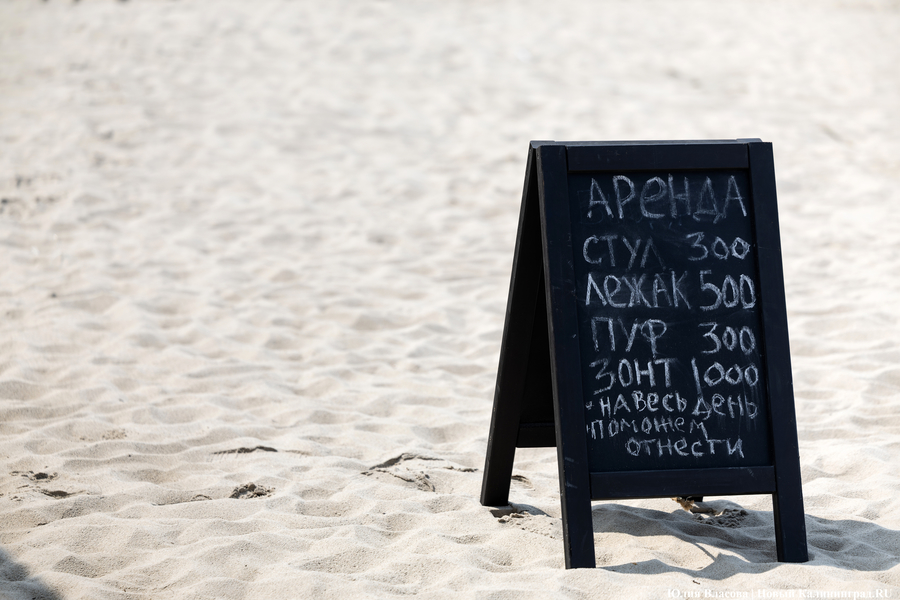 АРЕНДА
СТУЛ 300
ЛЕЖАК 500
ПУФ 300
ЗОНТ 1000
- НА ВЕСЬ ДЕНЬ
- ПОМОЖЕМ
ОТНЕСТИ
Юлия Власова | Новый Калининград.RU